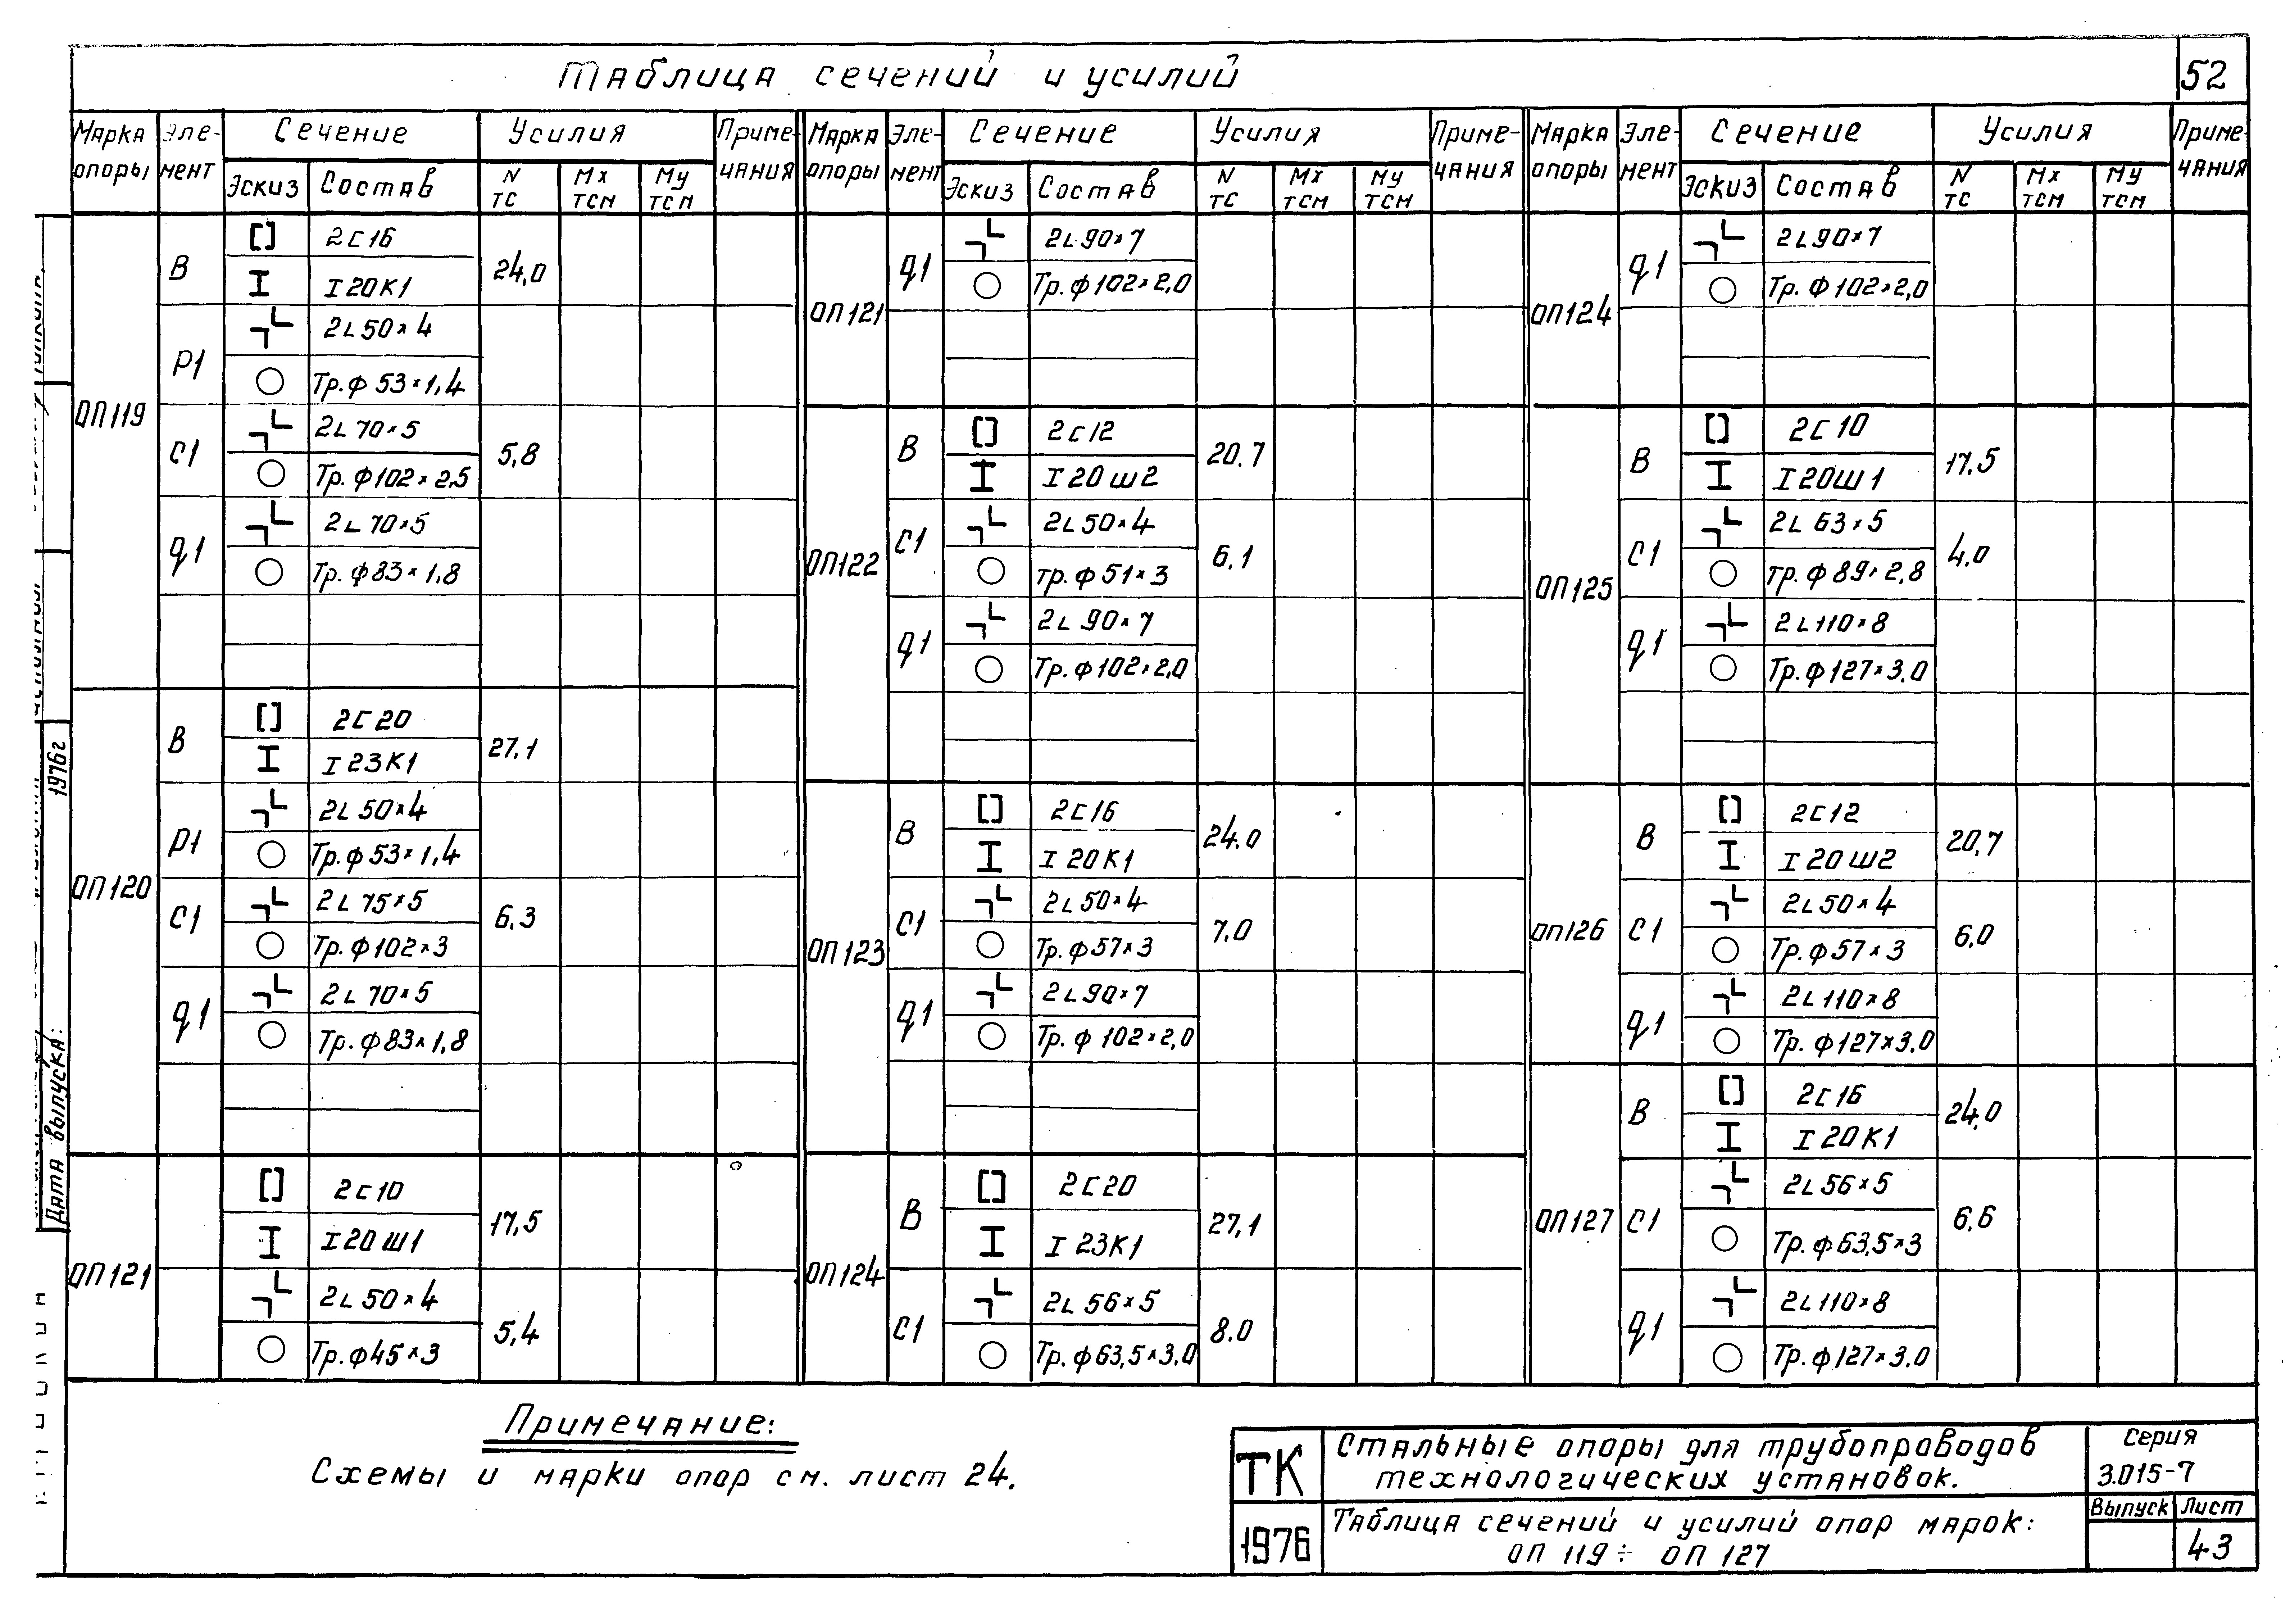 Таблица сечений и усилий
52
Марка опоры Элемент Сечение Усилия Примечания Марка опоры Элемент Сечение Усилия Примечания Марка опоры Элемент Сечение Усилия Примечания
Эскиз Состав N тс Mx тсм My тсм Эскиз Состав N тс Mx тсм My тсм Эскиз Состав N тс Mx тсм My тсм
ОП119
В
2С16
I20К1
24,0
Р1
2L50×4
Тр.ф53×1,4
С1
2L70×5
Тр.ф102×2,5
5,8
q1
2L70×5
Тр.ф83×1,8
ОП120
В
2С20
I23К1
27,1
Р1
2L50×4
Тр.ф53×1,4
С1
2L75×5
Тр.ф102×3
6,3
q1
2L70×5
Тр.ф83×1,8
ОП121
2С10
I20Ш1
17,5
2L50×4
Тр.ф45×3
5,4
ОП121
q1
2L90×7
Тр.ф102×2,0
ОП122
В
2С12
I20Ш2
20,7
С1
2L50×4
тр.ф51×3
6,1
q1
2L90×7
Тр.ф102×2,0
ОП123
В
2С16
I20К1
24.0
С1
2L50×4
Тр.ф57×3
7,0
q1
2L90×7
Тр.ф102×2,0
ОП124
В
2С20
I23К1
27,1
С1
2L56×5
Тр.ф63,5×3,0
8.0
ОП124
q1
2L90×7
Тр.ф102×2,0
ОП125
В
2С10
I20Ш1
17,5
С1
2L63×5
тр.ф89×2,8
4.0
q1
2L110×8
Тр.ф127×3.0
ОП126
В
2С12
I20Ш2
20,7
С1
2L50×4
Тр.ф57×3
6,0
q1
2L110×8
Тр.ф127×3.0
ОП127
В
2С16
I20К1
24,0
С1
2L56×5
Тр.ф63,5×3
6,6
q1
2L110×8
Тр.ф127×3.0
1976г
Дата выпуска:
Примечание:
Схемы и марки опор см. лист 24.
ТК
1976
Стальные опоры для трубопроводов
технологических установок.
Серия
3.015-7
Таблица сечений и усилий опор марок:
ОП 119 ÷ ОП 127
Выпуск Лист
43